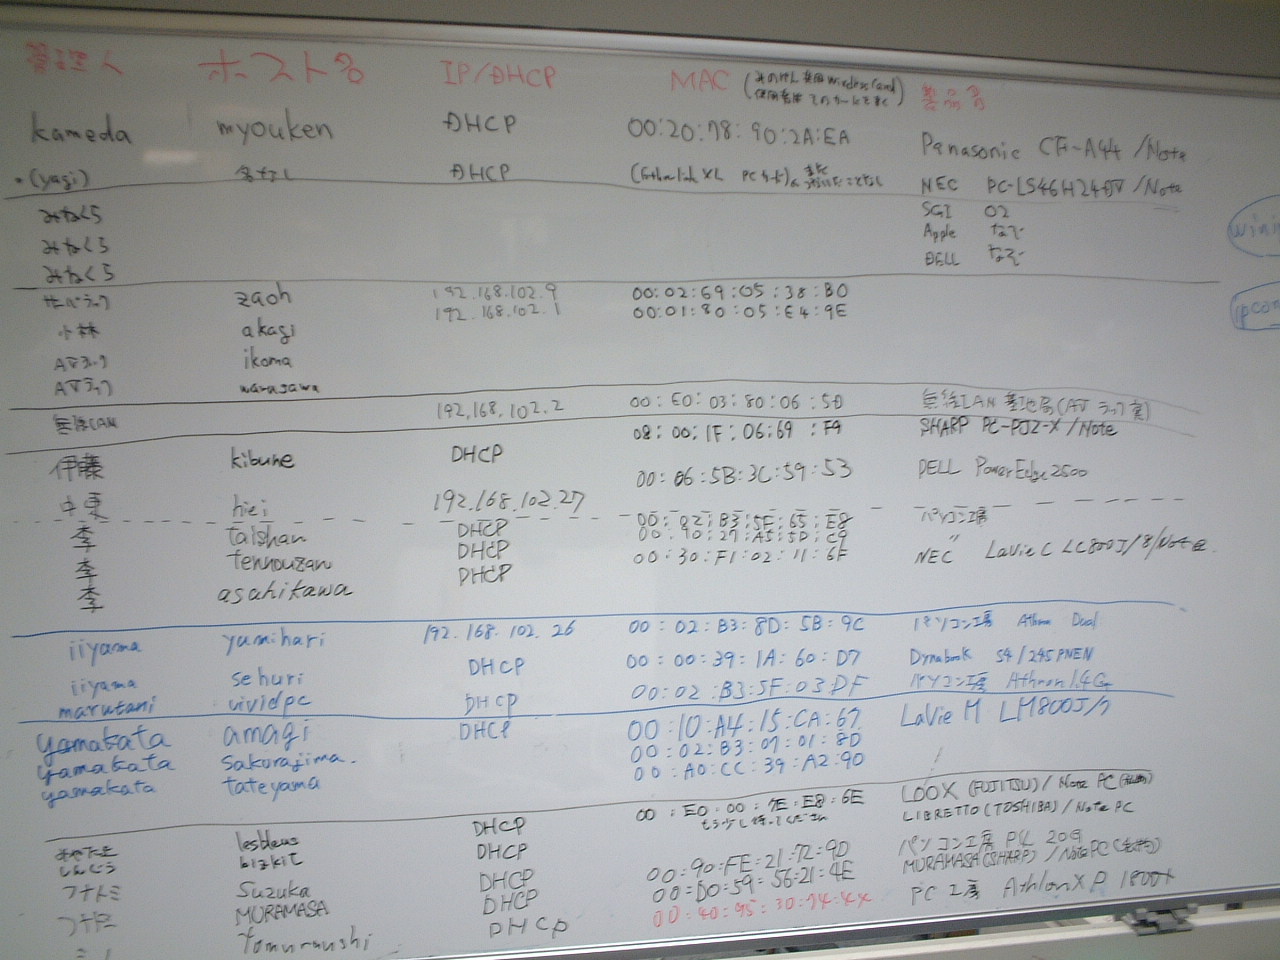 管理人 ホスト名 IP/DHCP MAC 製品名
kameda myouken DHCP 00:20:78:90:2A:EA Panasonic CF-A44 /Note
(yagi) 名なし DHCP NEC /Note
みねくら SGI O2
みねくら Apple なぞ
みねくら DELL なぞ
サーバラック zaoh 192.168.102.9 00:02:69:05:38:B0
小林 akagi 192.168.102.1 00:01:80:05:E4:9E
AVラック ikoma
AVラック
無線LAN 192.168.102.2 00:E0:03:80:06:5D 無線LAN 基地局(AVラック裏)
伊藤 kibune DHCP 08:00:1F:06:69:F9 SHARP PC-PJ2-X /Note
中東 hiei 192.168.102.27 00:06:5B:3C:59:53 DELL PowerEdge2500
李 taishan DHCP 00:02:B3:5F:65:E8 パソコン工房
李 tennouzan DHCP 00:90:27:A5:5D:C9 〃
李 asahikawa DHCP 00:30:F1:02:11:6F NEC LaVie C LC800J/8/Note
iiyama yumihari 192.168.102.26 00:02:B3:8D:5B:9C パソコン工房 Dual
iiyama sehuri DHCP 00:00:39:1A:60:D7 Dynabook S4/245PNEN
marutani vividpc DHCP 00:02:B3:5F:03:DF パソコン工房 Athlon1.4G
yamakata amagi DHCP 00:10:A4:15:CA:67 LaVie M LM800J/7
yamakata sakurajima. 00:02:B3:07:01:8D
yamakata tateyama 00:A0:CC:39:A2:90
lesbleus DHCP 00:E0:00:7E:E8:6E LOOX (FUJITSU) / Note PC
しんどう bizkit DHCP もう少し待ってください LIBRETTO (TOSHIBA) / Note PC
フナトミ Suzuka DHCP 00:90:FE:21:72:9D パソコン工房
フナトミ MURAMASA DHCP 00:D0:59:56:21:4E MURAMASA(SHARP) / NotePC
tomuraushi DHCP PC工房 AthlonXP 1800+